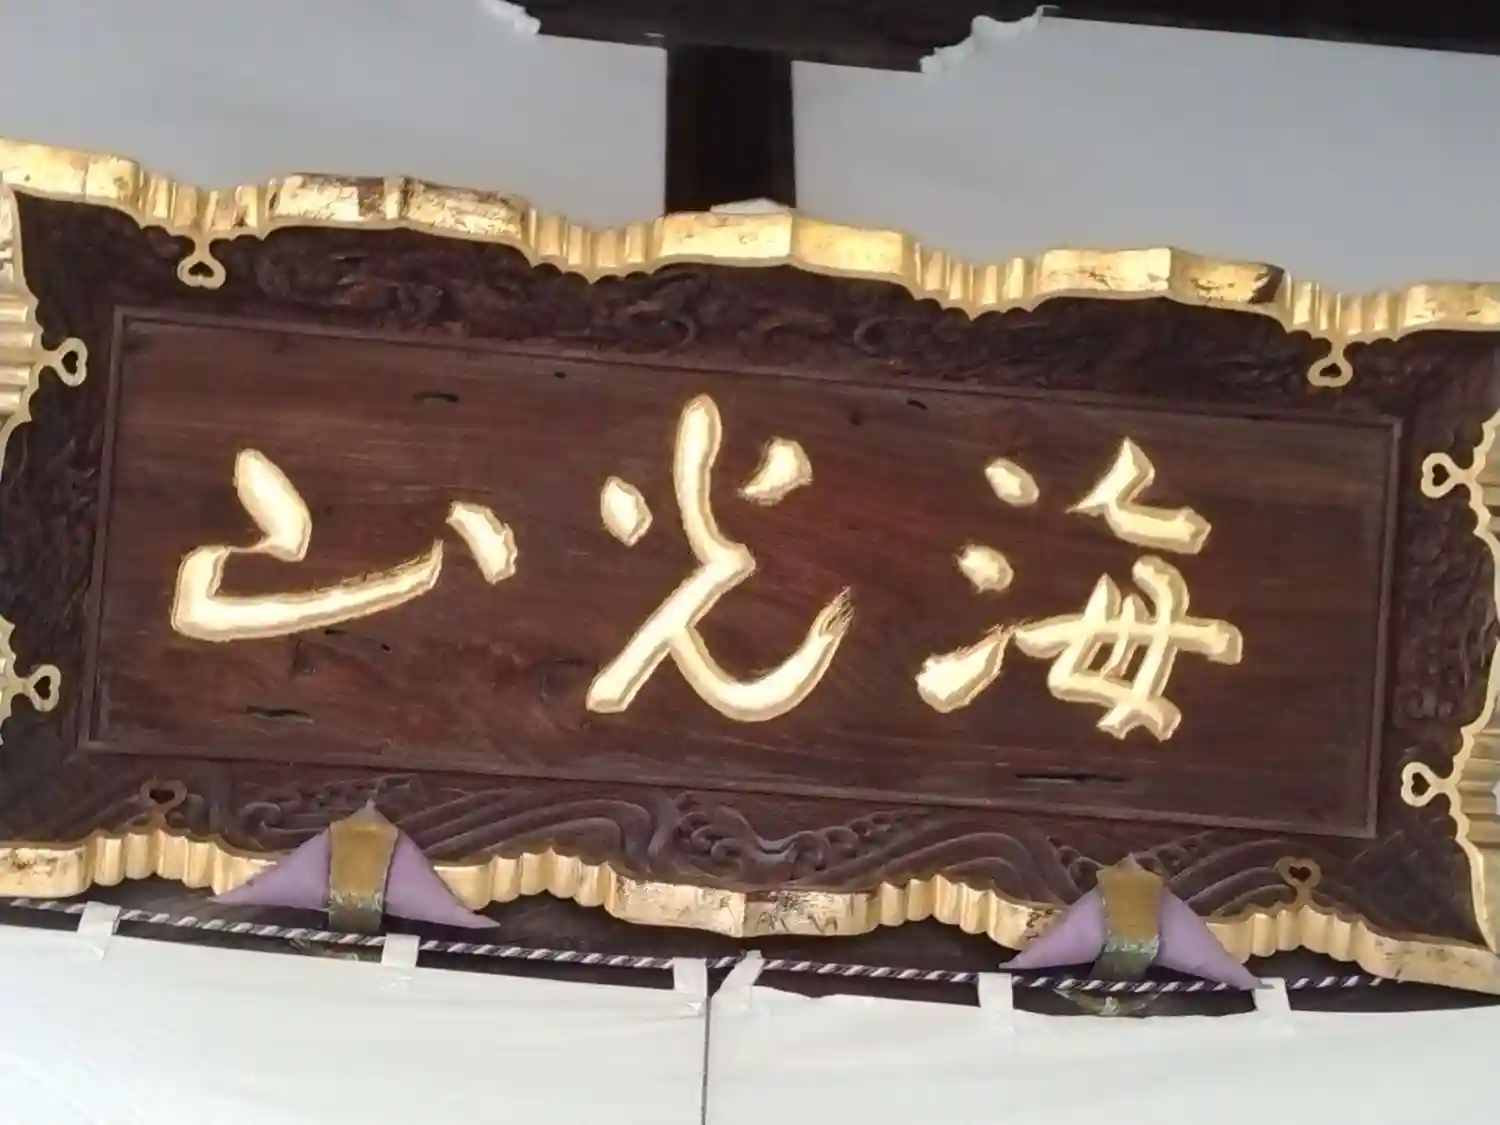 海光山